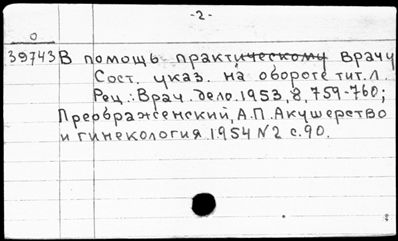 -2-
О
39743 В помощь практическому врачу
Сост. указ. на обороте тит. л.
Рец.: Врач. дело. 1953, 8, 759-760;
Преображенский, А.П. Акушерство
и гинекология. 1954 №2 с. 90.